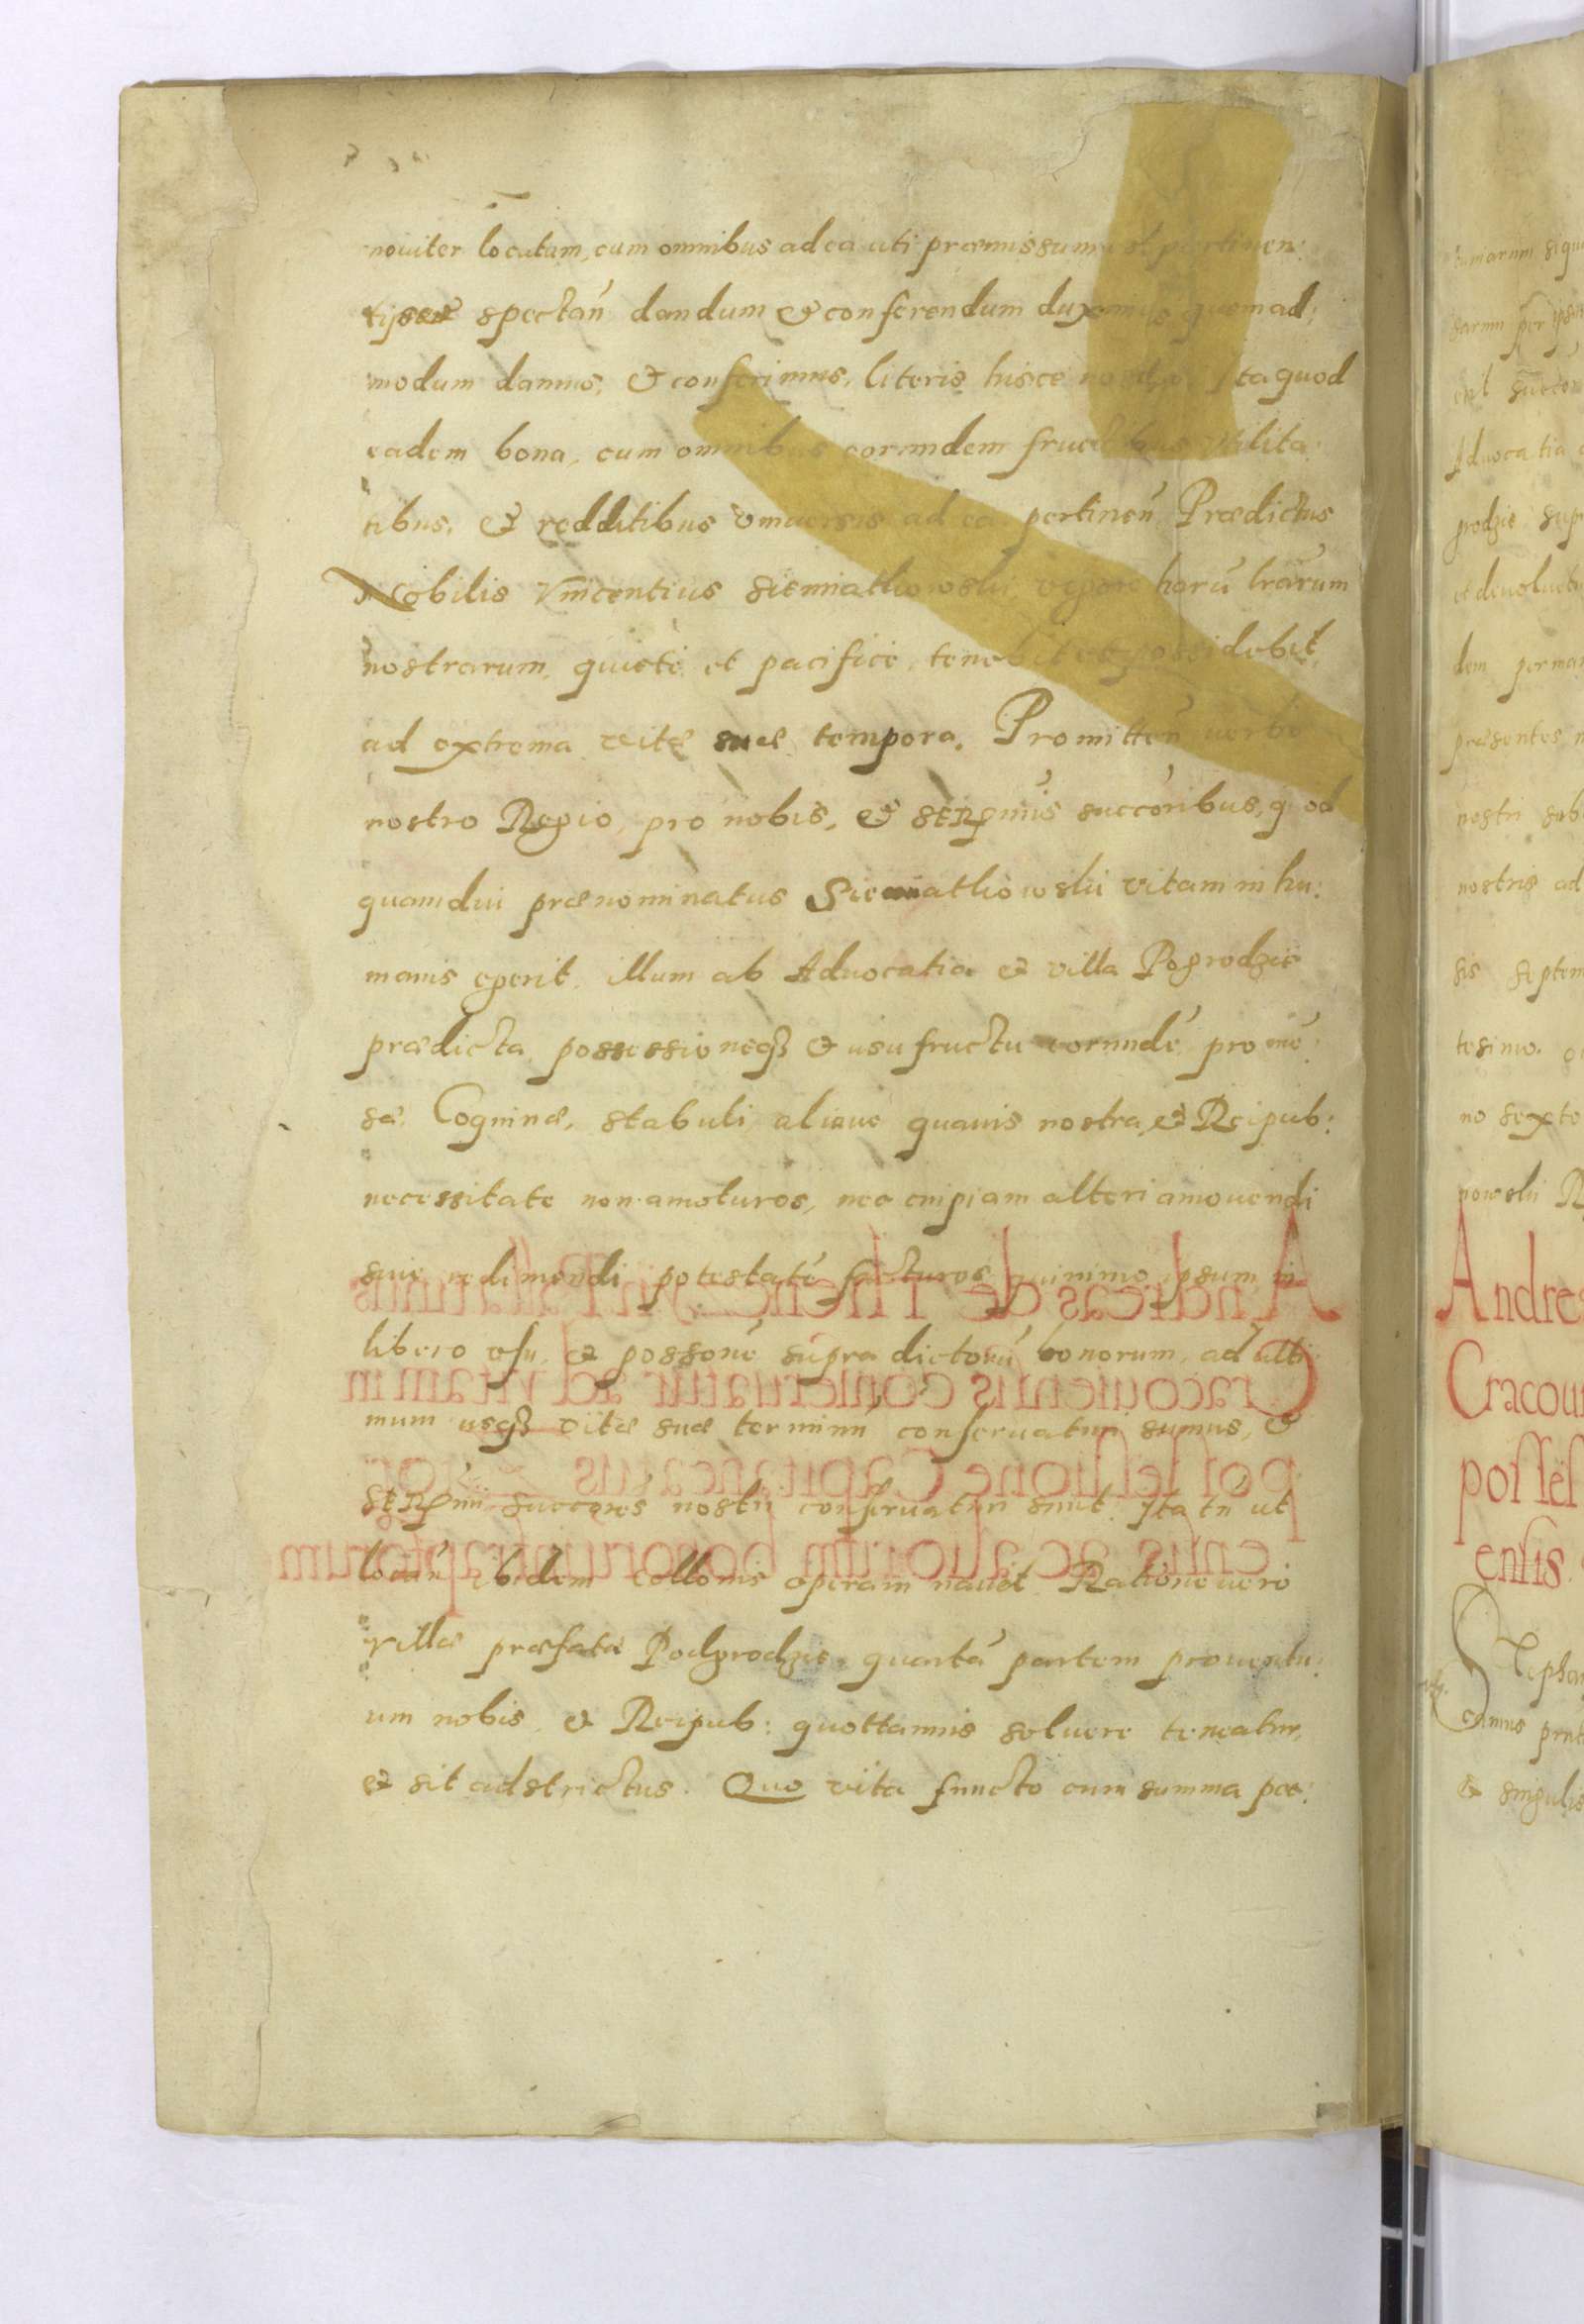 noviter locatam, cum omnibus ad ea uti præmissum est pertinen:
tijs et spectań dandum & conferendum duximus quemad:
modum damus, & conferimus, literis hisce nostris Ita quod
eadem bona, cum omnibus eorundem fructibus Vtilita:
tibus, & redditibus vniuersis ad ea pertineń Prædictus
Nobilis Vincentius Siemiathkowskÿ vigore harū lrārum
nostrarum, quiete et pacifice, tenebit et possidebit,
ad extrema vitę suæ tempora. Promitteń verbo
nostro Regio, pro nobis, & Serp̄mis succōribus, quod
quamdiu prænominatus Siemiathkowskÿ vitam in hu:
manis egerit, illum ab Aduocatia & villa Pogrodzie
prædicta, possessioneqȝ & usufructu eorundē pro mē:
sa, Coquinæ, stabuli, aliaue quauis nostra & Reipub:
necessitate non amoturos, nec cuipiam alteri amouendi
siue redimendi potestatē facturos quinimo ipsum in
libero vsu, & possōne supra dictorū bonorum, ad ulti
mum usqȝ vitæ suæ terminū conseruaturi sumus, &
Serp̄mi succōres nostri conseruaturi sunt. Ita tn̄ ut
locań ibidem collonis operam nauet. Ratione vero
villæ præfatæ Podgrodzie, quartā partem prouentu:
um nobis, & Reipub: quottannis soluere teneatur,
& sit adstrictus. Quo vita functo cum summa pec:
Andre
Cracoui
possess
ensis